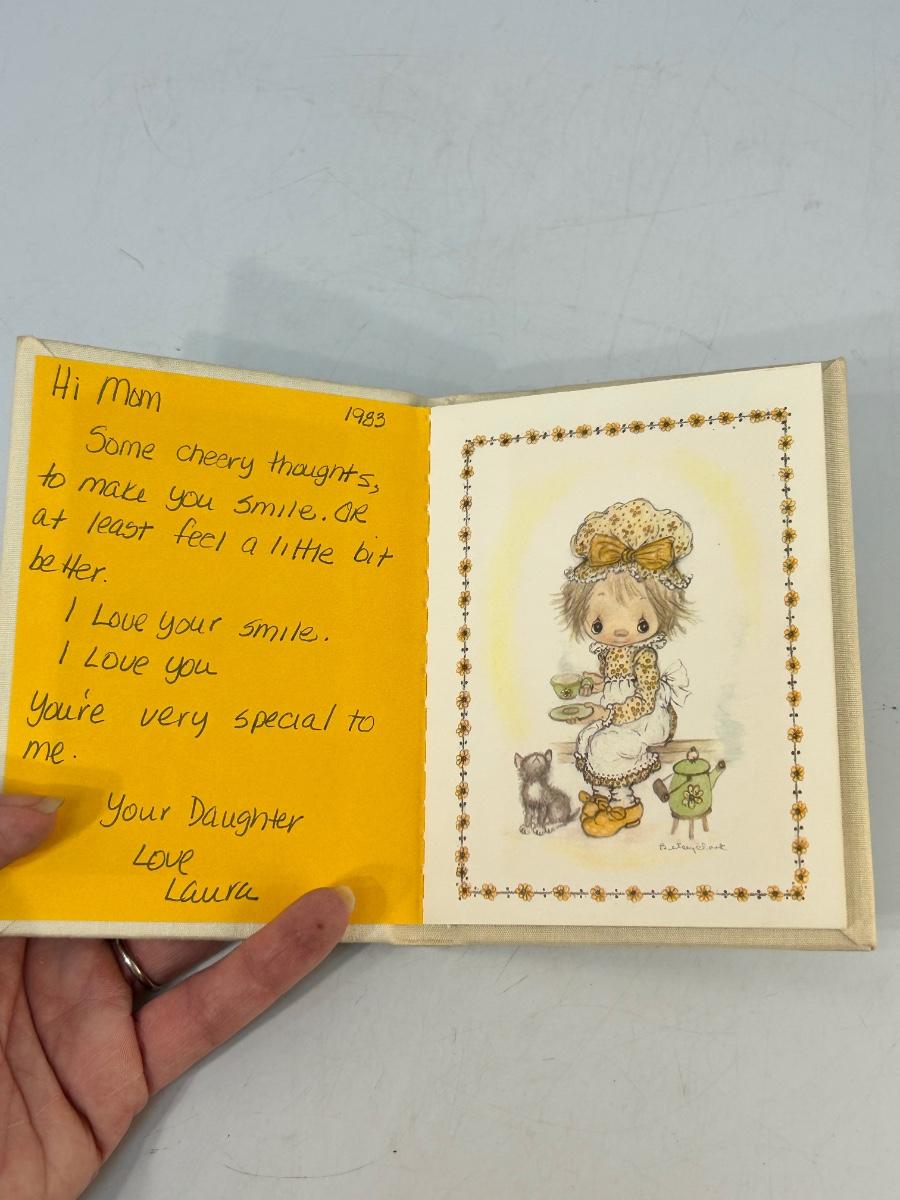 Hi Mom
1983
Some cheery thoughts,
to make you smile. OR
at least feel a little bit
better.
I Love your smile.
I Love you
You're very special to
me.
Your Daughter
Love
Laura
Betsey Clark